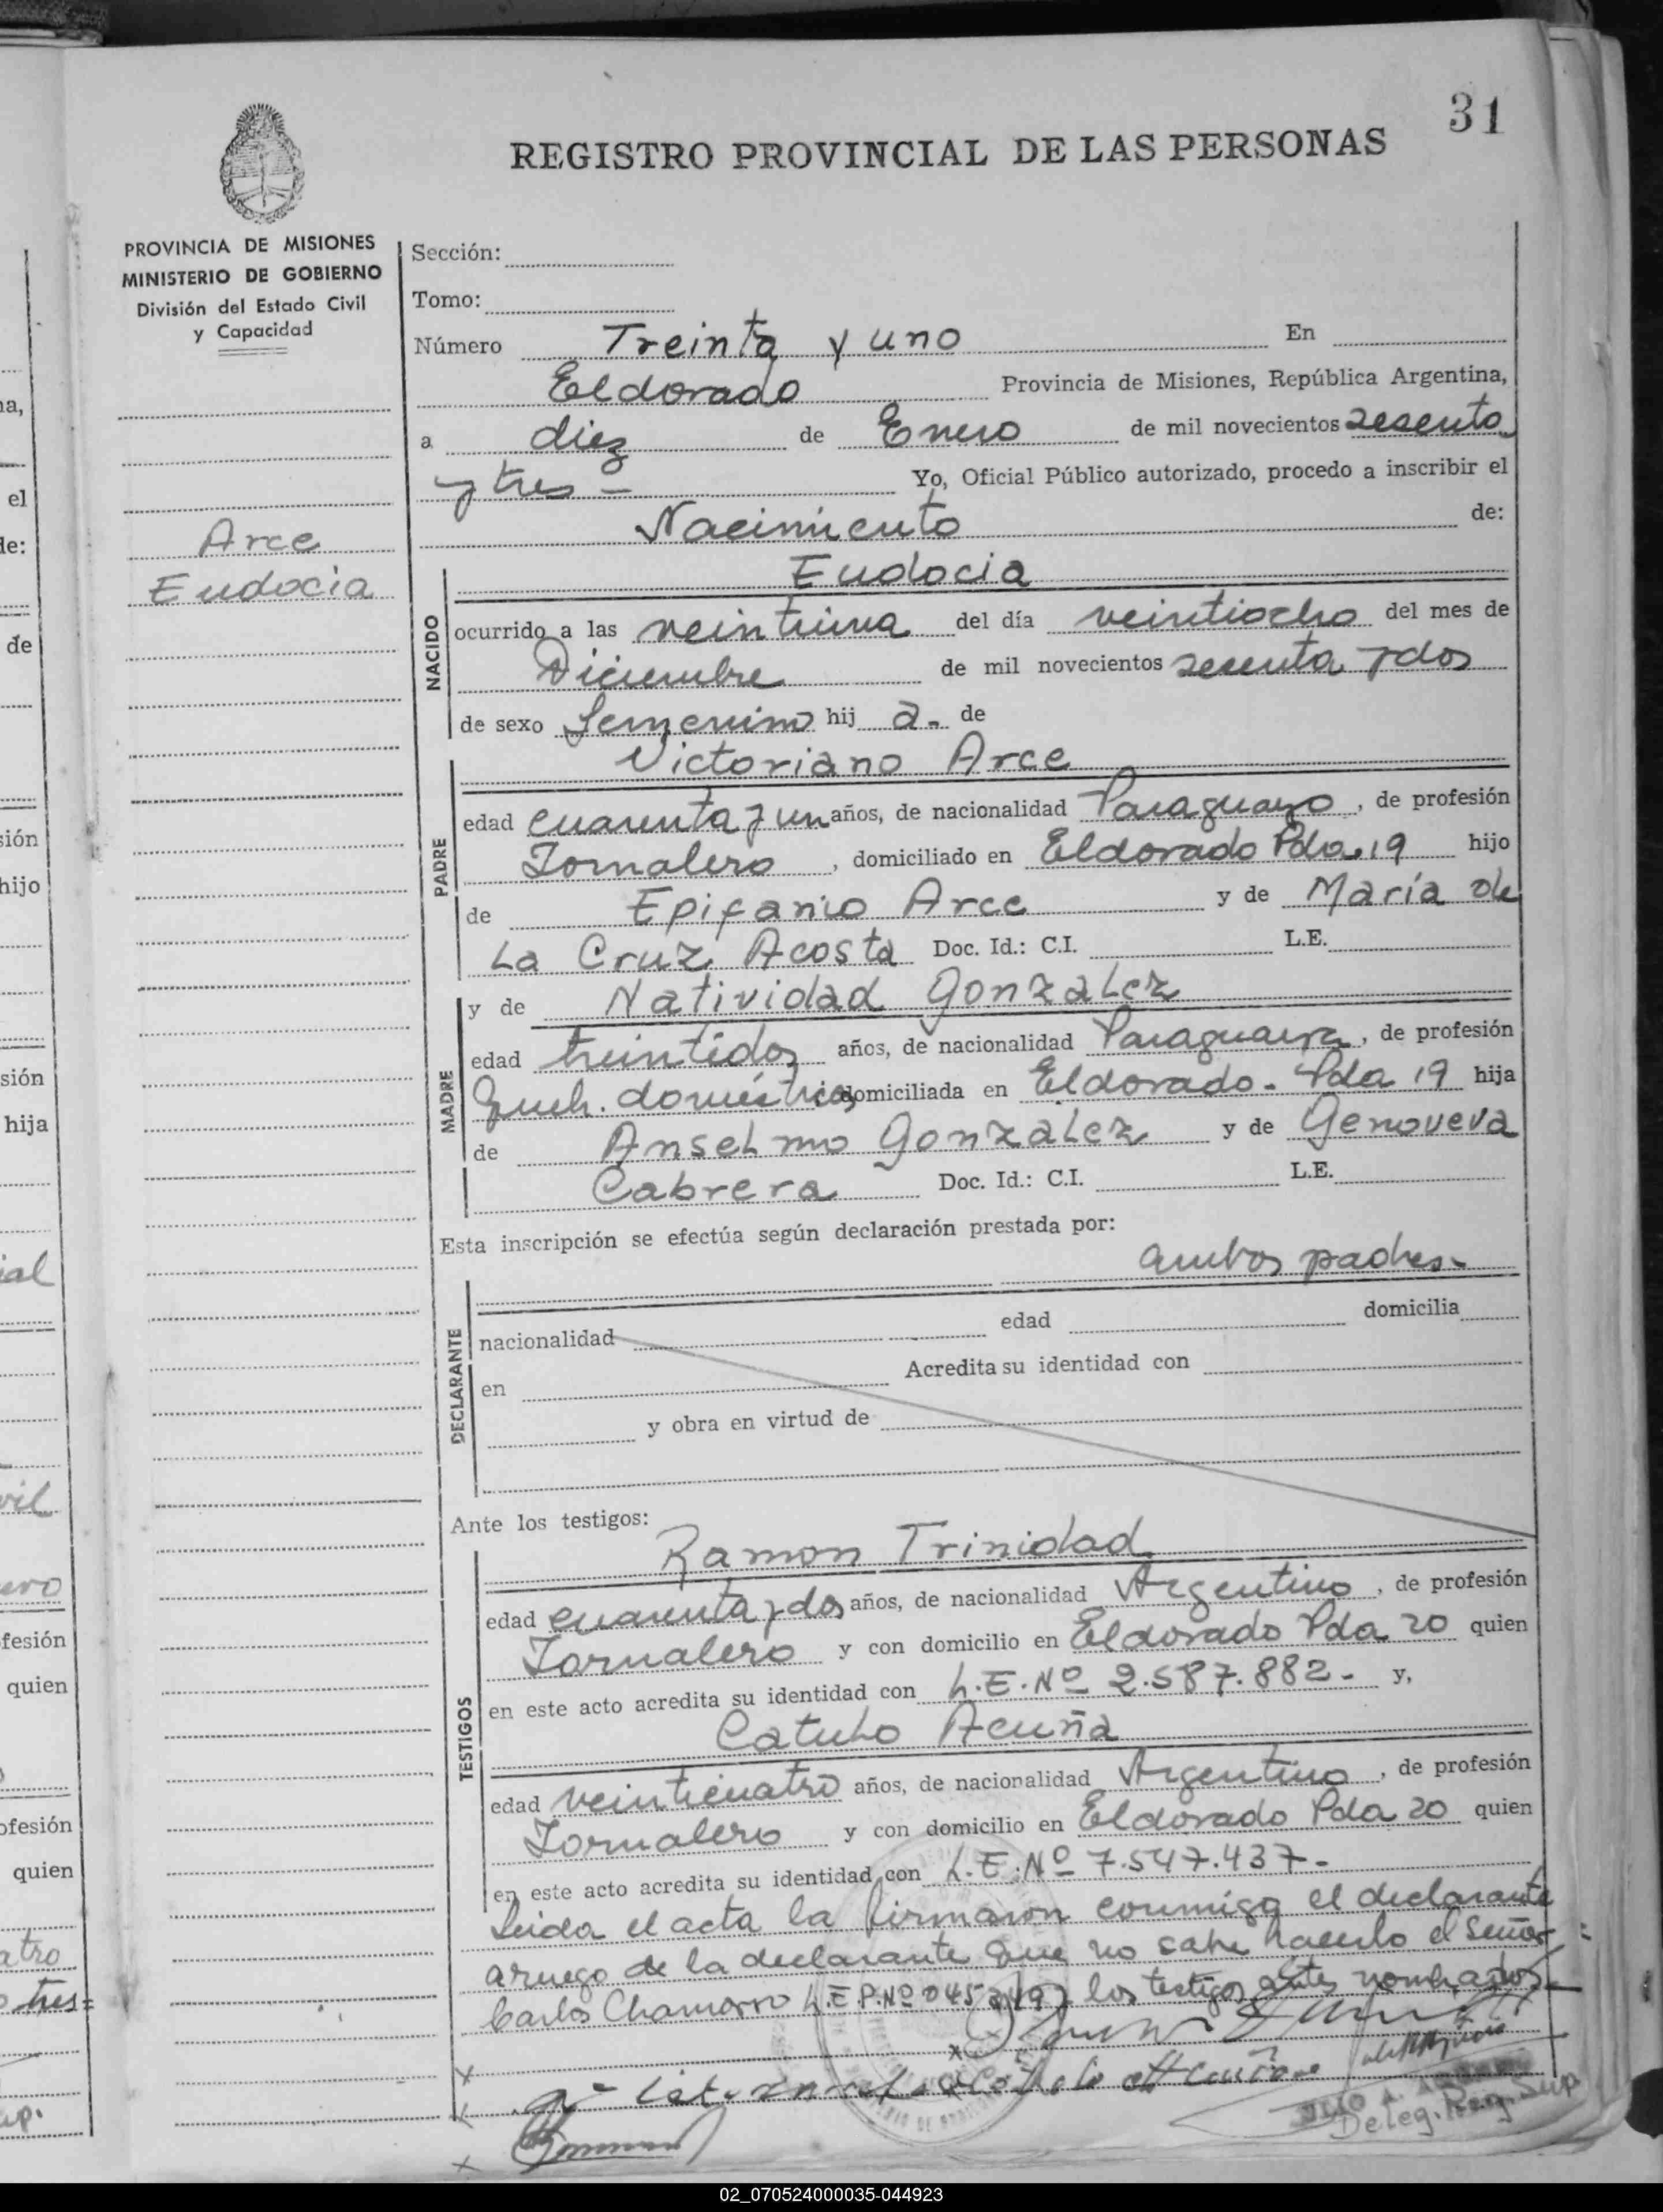 31
REGISTRO PROVINCIAL DE LAS PERSONAS
PROVINCIA DE MISIONES
MINISTERIO DE GOBIERNO
División del Estado Civil
y Capacidad
Arce
Eudocia
Sección:
Tomo:
Número Treinta y uno En
Eldorado Provincia de Misiones, República Argentina,
a diez de Enero de mil novecientos sesenta
y tres - Yo, Oficial Público autorizado, procedo a inscribir el
Nacimiento de:
NACIDO
Eudocia
ocurrido a las veintiuna del día veintiocho del mes de
Diciembre de mil novecientos sesenta y dos
de sexo Femenino hij a. de
PADRE
Victoriano Arce
edad cuarenta y un años, de nacionalidad Paraguayo, de profesión
Jornalero, domiciliado en Eldorado Pda. 19 hijo
de Epifanio Arce y de María de
La Cruz Acosta Doc. Id.: C.I. L.E.
MADRE
y de Natividad Gonzalez
edad treintidos años, de nacionalidad Paraguaya, de profesión
Queh. domésticos domiciliada en Eldorado. Pda 19 hija
de Anselmo Gonzalez y de Genoveva
Cabrera Doc. Id.: C.I. L.E.
Esta inscripción se efectúa según declaración prestada por:
ambos padres.
DECLARANTE
nacionalidad edad domicilia
en Acredita su identidad con
y obra en virtud de
Ante los testigos:
TESTIGOS
Ramon Trinidad
edad cuarenta y dos años, de nacionalidad Argentino, de profesión
Jornalero y con domicilio en Eldorado Pda 20 quien
en este acto acredita su identidad con L.E. Nº 2.587.882. y,
Catulo Acuña
edad veinticuatro años, de nacionalidad Argentino, de profesión
Jornalero y con domicilio en Eldorado Pda 20 quien
en este acto acredita su identidad con L.E. Nº 7.547.437.
Leida el acta la firmaron conmigo el declarante
a ruego de la declarante que no sabe hacerlo el Señor
Carlos Chamorro L.E.P. Nº los testigos antes nombrados
Deleg. Reg. Sup
02_070524000035-044923